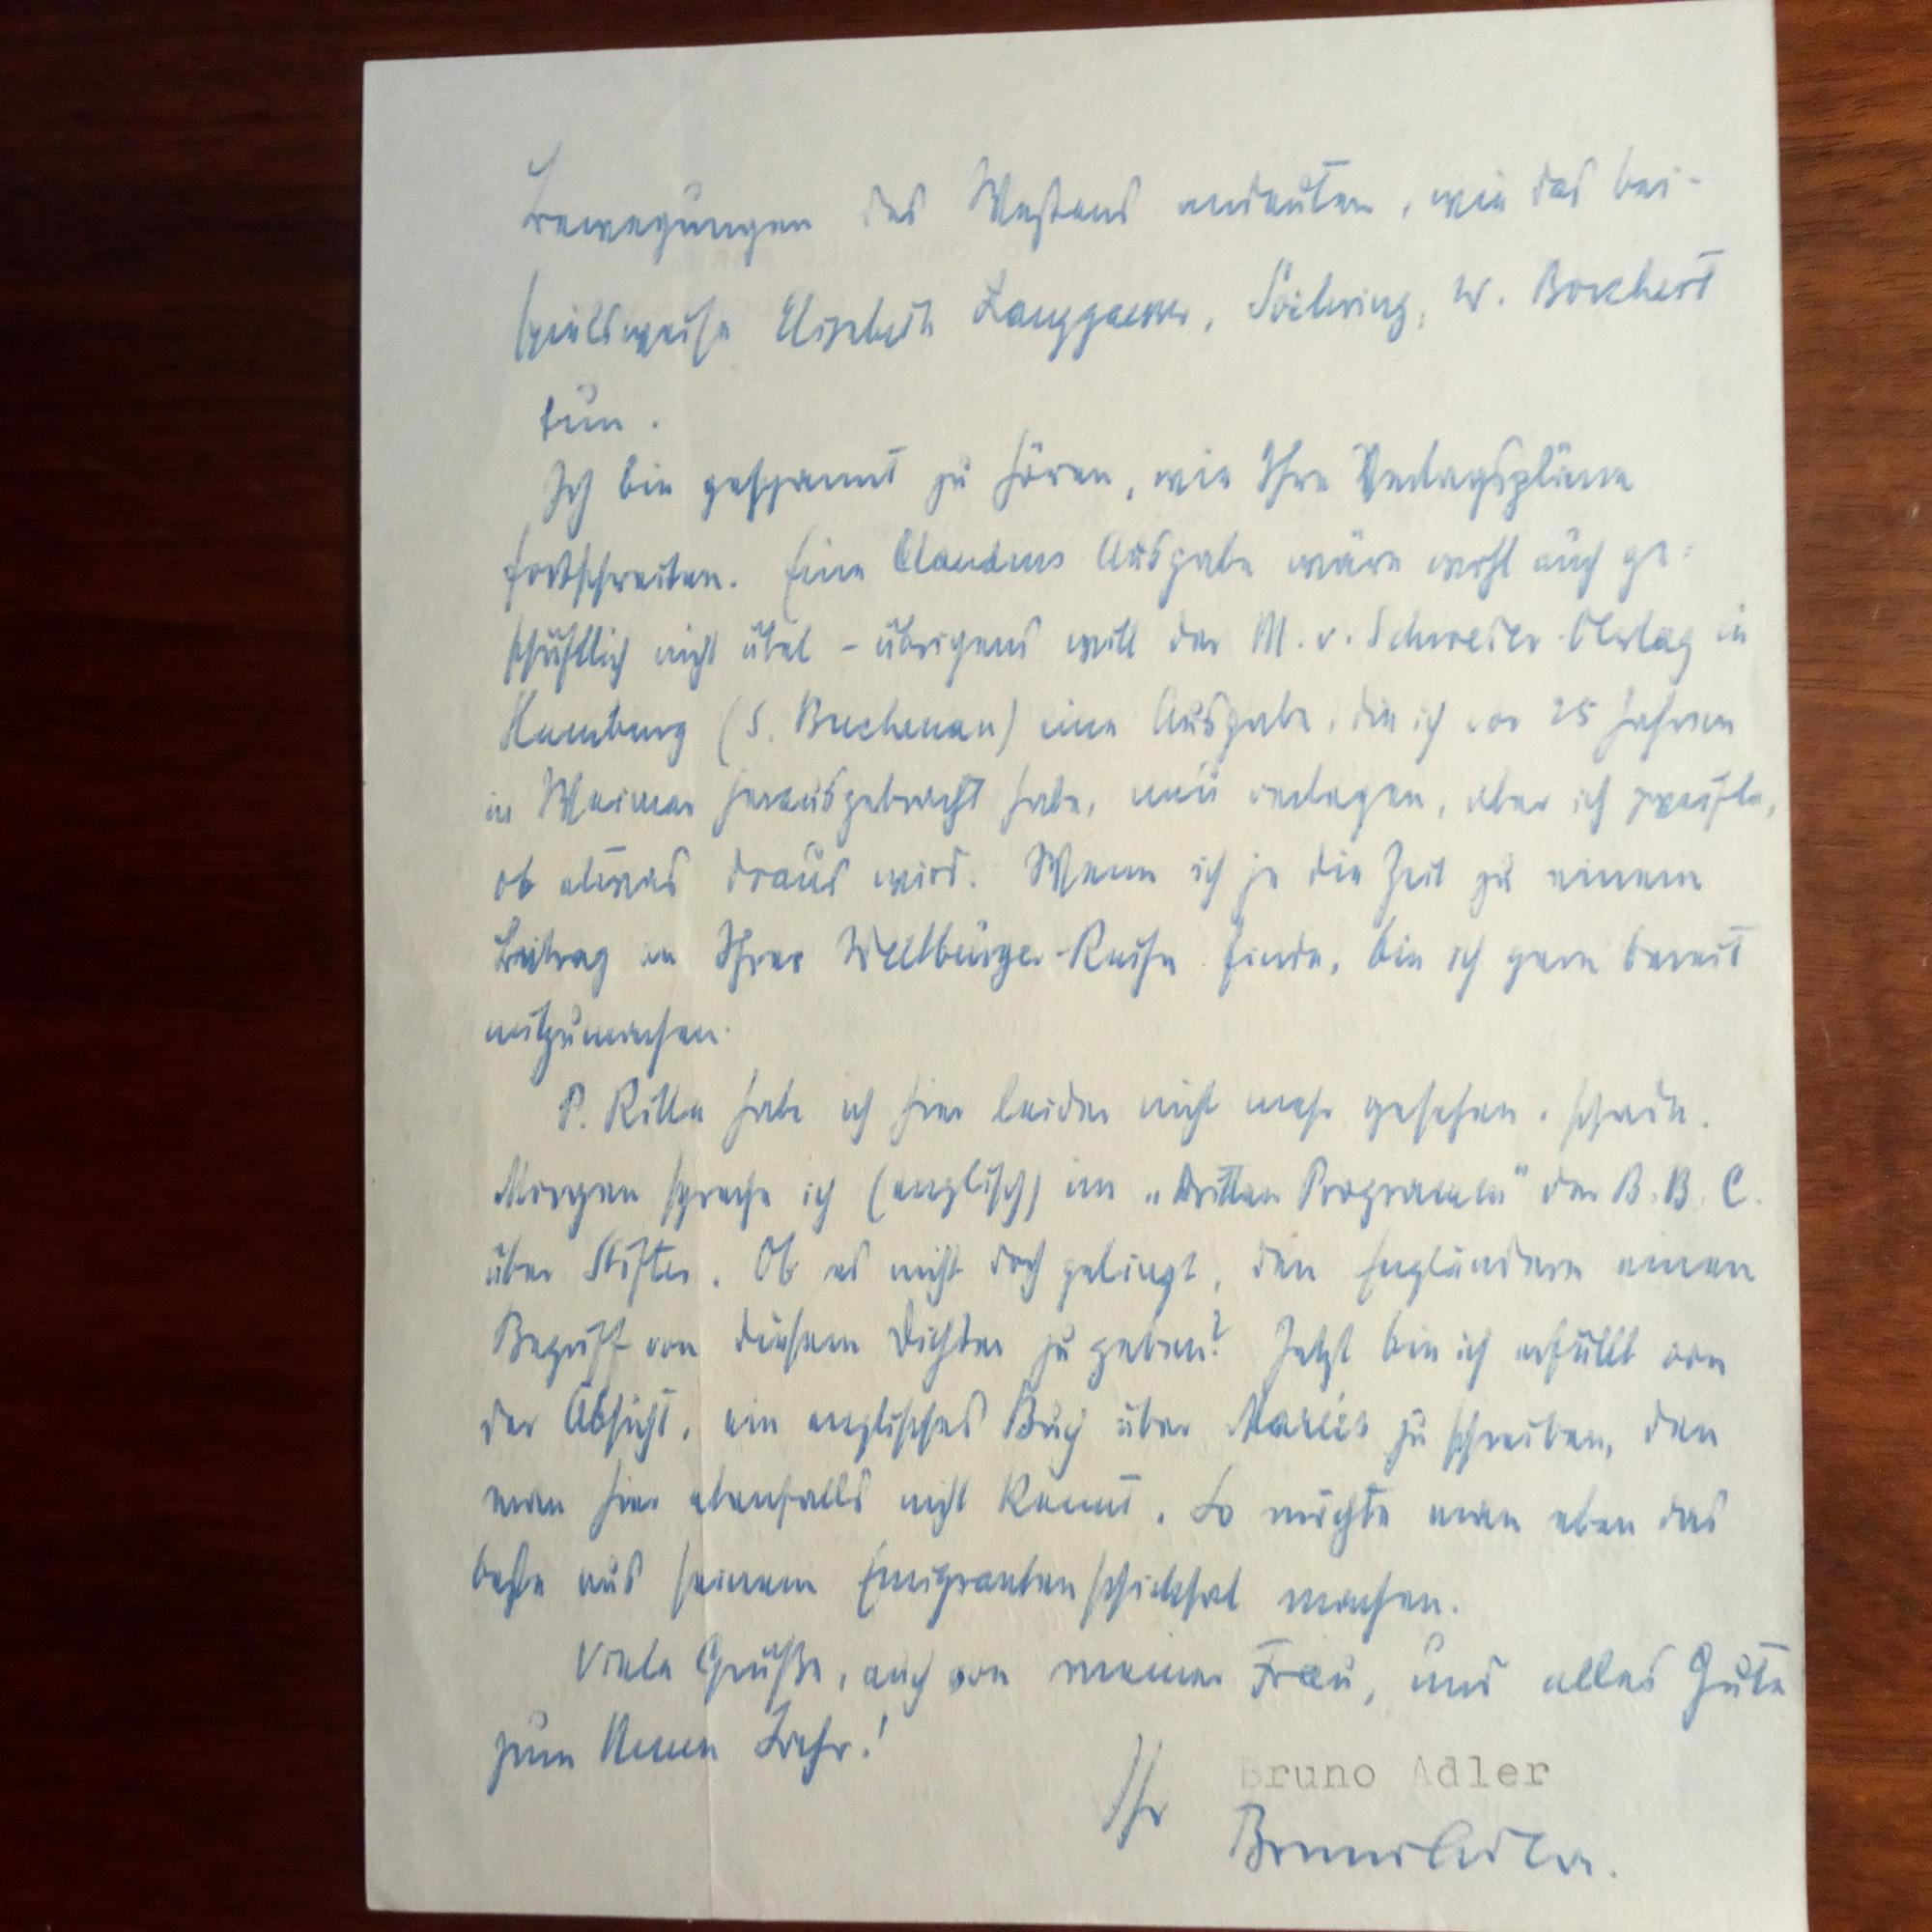 Bewegungen des Westens andeuten, wie das bei-
spielsweise Elisabeth Langgaesser, W. Borchert
tun.
Ich bin gespannt zu hören, wie Ihre Verlagspläne
fortschreiten. Eine Claudius Ausgabe wäre wohl auch ge-
schäftlich nicht übel – übrigens will der M. v. Schroeder-Verlag in
Hamburg (S. Buchenau) eine Ausgabe, die ich vor 25 Jahren
in Weimar herausgebracht habe, neu verlegen, aber ich zweifle,
ob etwas draus wird. Wenn ich je die Zeit zu einem
Beitrag in Ihrer Weltbürger-Reihe finde, bin ich gern bereit
mitzumachen.
P. Rilla habe ich hier leider nicht mehr gesehen. schade.
Morgen spreche ich (englisch) im „Dritten Programm" der B. B. C.
über Stifter. Ob es nicht doch gelingt, den Engländern einen
Begriff von diesem Dichter zu geben? Jetzt bin ich erfüllt von
der Absicht, ein englisches Buch über Marées zu schreiben, den
man hier ebenfalls nicht kennt. So möchte man eben das
beste aus seinem Emigrantenschicksal machen.
Viele Grüße, auch von meiner Frau, und alles Gute
zum Neuen Jahr!
Ihr Bruno Adler
Bruno Adler.